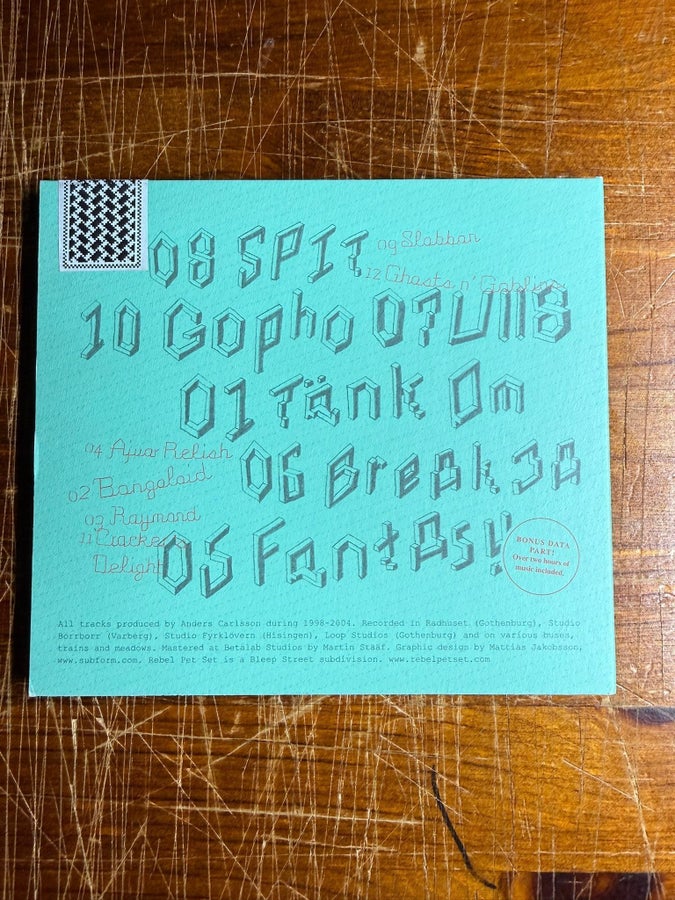 08 SPIT
09 Slabban
12 Ghosts n' Goblins
10 Gopho
07 U118
01 Tänk Om
04 Ajua Relish
06 Break
02 Bangaloid
03 Raymond
11 Cracker
Delight
05 Fantasy
BONUS DATA
PART!
Over two hours of
music included.
All tracks produced by Anders Carlsson during 1998-2004. Recorded in Radhuset (Gothenburg), Studio
Börrbörr (Varberg), Studio Fyrklövern (Hisingen), Loop Studios (Gothenburg) and on various buses,
trains and meadows. Mastered at Betalab Studios by Martin Stääf. Graphic design by Mattias Jakobsson,
www.subform.com. Rebel Pet Set is a Bleep Street subdivision. www.rebelpetset.com